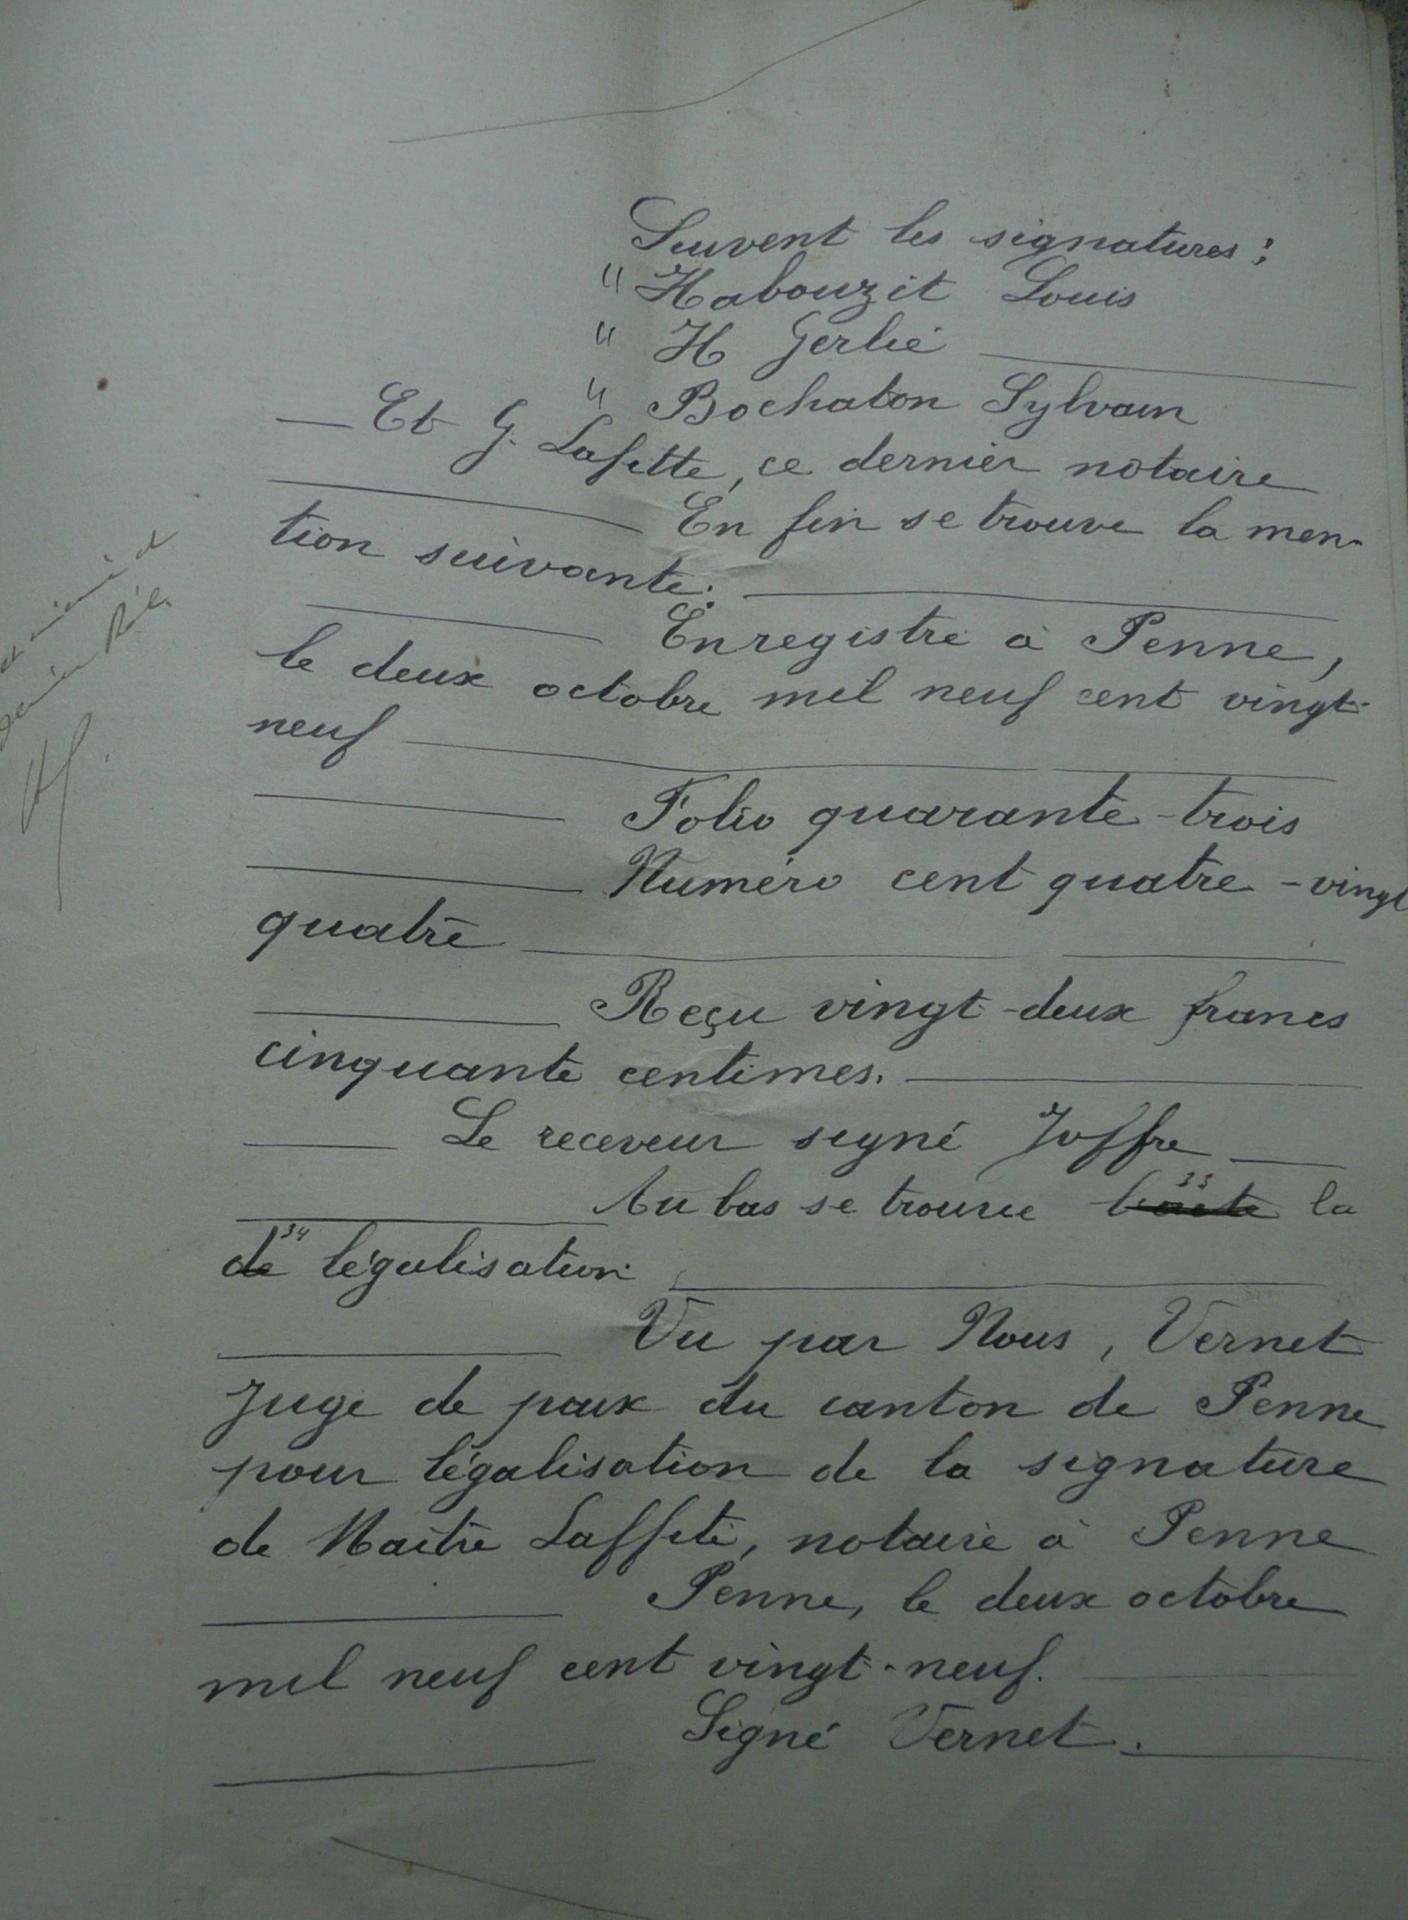 Suivent les signatures :
" Habouzit Louis
" H Gerlié
" Bochaton Sylvain
Et G. Lafitte, ce dernier notaire
En fin se trouve la men-
tion suivante :
Enregistré à Penne,
le deux octobre mil neuf cent vingt-
neuf
Folio quarante-trois
Numéro cent quatre-vingt
quatre
Reçu vingt-deux francs
cinquante centimes.
Le receveur signé Joffre
Au bas se trouve 33 la
de 34 légalisation
Vu par Nous, Vernet
Juge de paix du canton de Penne
pour légalisation de la signature
de Maître Laffite, notaire à Penne
Penne, le deux octobre
mil neuf cent vingt-neuf.
Signé Vernet.